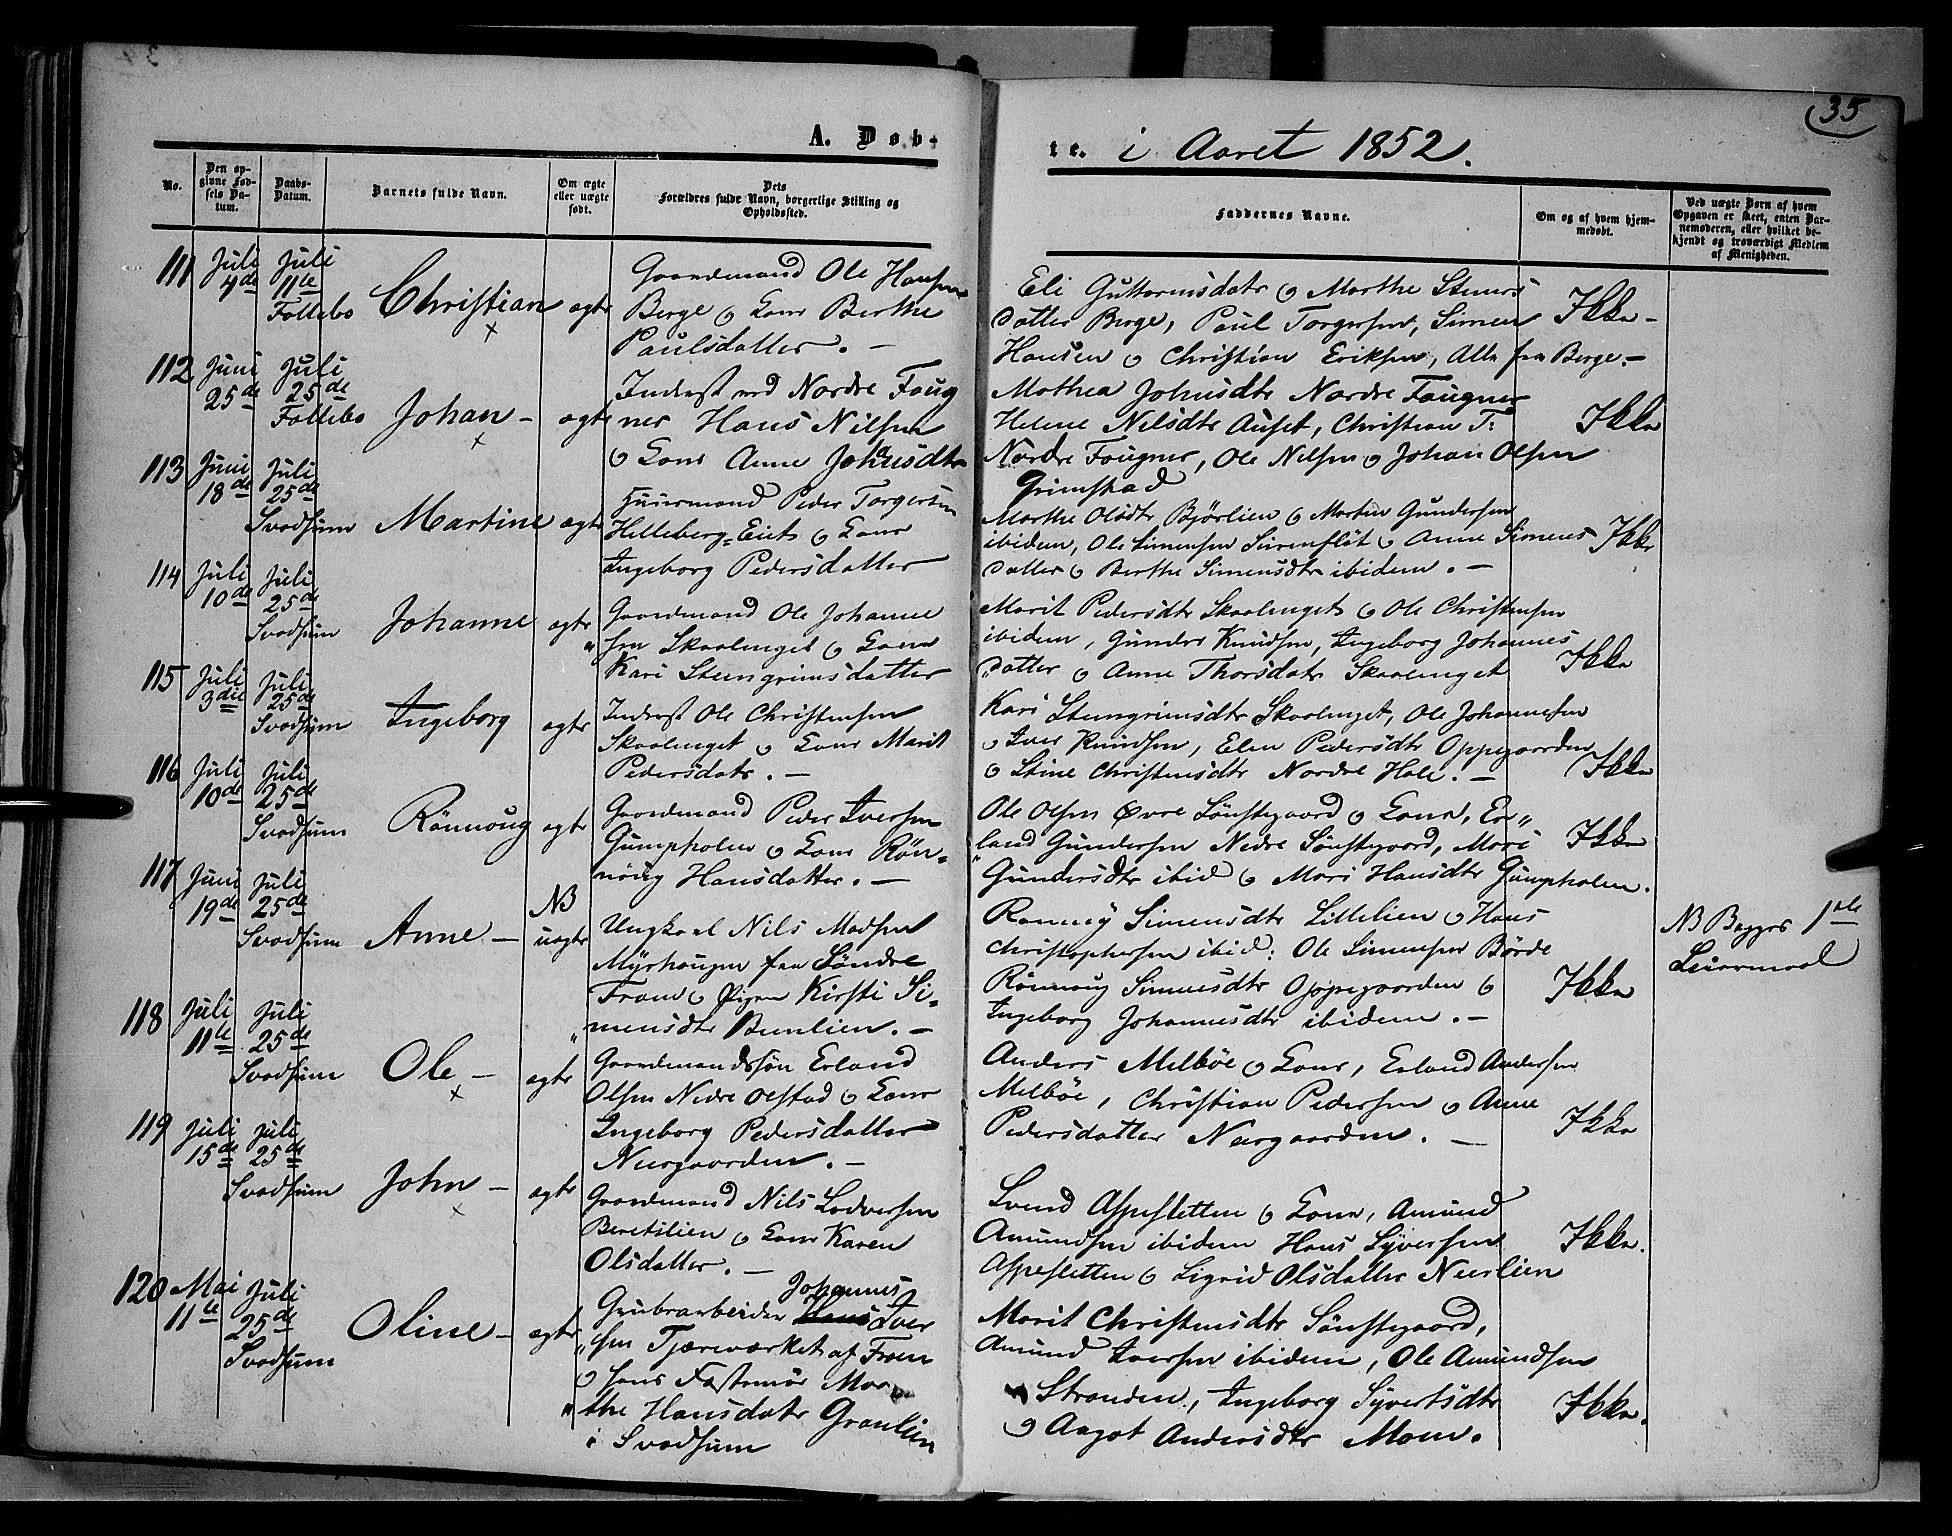 35
A. Døb-
te. i Aaret 1852.
No.
Den op-
givne Fød-
sels Da-
tum.
Daabs-
Datum.
Barnets fulde Navn.
Om ægte
eller uægte
født.
Dets
Forældres fulde Navn, borgerlige Stilling og
Opholdssted.
Faddernes Navne.
Om og af hvem hjem-
medøbt.
Ved uægte Børn af hvem
Opgaven er skeet, enten Bar-
nemoderen, eller hvilket be-
kjendt og troværdigt Medlem
af Menigheden.
111 Juli 4de Juli 11te Follebo Christian ægte
Gaardmand Ole Hansen
Berge og Kone Berthe
Paulsdatter. –
Eli Guttormsdatr og Marthe Steners
datter Berge, Paul Torgersen, Simen
Hansen og Christian Eriksen, Alle fra Berge. –
Ikke –
112 Juni 25de Juli 25de Follebo Johan – ægte
Inderst ved Nordre Foug
ner Hans Nilsen
og Kone Anne Johnsdtr
Mathea Johnsdtr Nordre Fougner
Helene Nilsdtr Auset, Christian T:
Nordre Fougner, Ole Nilsen og Johan Olsen
Grimstad
Ikke
113 Juni 18de Juli 25de Svadsum Martine ægte
Huusmand Peder Torgersen
Helleberg-Eiet og Kone
Ingeborg Pedersdatter
Marthe Olsdtr Bjørlien og Martin Gundersen
ibidem, Ole Simensen og Anne Simens
datter og Berthe Simensdtr ibidem. –
Ikke
114 Juli 10de Juli 25de Svadsum Johanne ægte
Gaardmand Ole Johanne
sen Skaalenget og Kone
Kari Steingrimsdatter
Marit Pedersdtr Skaalenget og Ole Christensen
ibidem, Gunder Knudsen, Ingeborg Johannes
datter og Anne Thorsdatr Skaalenget
Ikke
115 Juli 3die Juli 25de Svadsum Ingeborg ægte
Inderst Ole Christensen
Skaalenget og Kone Marit
Pedersdatr. –
Kari Steingrimsdtr Skaalenget, Ole Johannesen
og Iver Knudsen, Elen Pedersdtr Oppegaarden
og Stine Christensdtr Nordre Hole. –
Ikke
116 Juli 10de Juli 25de Svadsum Rönnoug ægte
Gaardmand Peder Iversen
Gumpholen og Kone Rön-
noug Hansdatter. –
Ole Olsen Øvre Sönstegaard og Kone, Er„
land Gundersen Nedre Sönstegaard, Mari
Gundersdtr ibid og Mari Hansdtr Gumpholen.
Ikke
117 Juni 19de Juli 25de Svadsum Anne – NB uægte
Ungkarl Nils Madsen
Myrhaugen fra Söndre
Fron og Pigen Kirsti Si-
mensdtr Bunlien. –
Ronnoug Simensdtr Lillelien og Hans
Christophersen ibid: Ole Simensen Börde
Rönnoug Simensdtr Oppegaarden og
Ingeborg Johannesdtr ibidem. –
Ikke
NB Begges 1ste
Leiermaal
118 Juli 11te Juli 25de Svadsum Ole – ægte
Gaardmandssön Erland
Olsen Nedre Olstad og Kone
Ingeborg Pedersdatter
Neergaarden. –
Anders Melböe og Kone, Erland Andersen
Melböe, Christian Pedersen og Anne
Pedersdatter Neergaarden. –
Ikke
119 Juli 15de Juli 25de Svadsum John – ægte
Gaardmand Nils Lodversen
Beretslien og Kone Karen
Olsdatter. –
Svend Aspesletten og Kone, Amund
Amundsen ibidem Hans Syversen
Aspesletten og Sigrid Olsdatter Neerlien
Ikke.
120 Mai 11te Juli 25de Svadsum Oline – ægte
Johannes
Grubearbeider Hans Iver
„sen Tjæreværket af Fron
og hans Fæstemöe Mar
„the Hansdatr Granlien
i Svadsum
Marit Christensdtr Sönstegaard,
Amund Iversen ibidem, Ole Amundsen
Stranden, Ingeborg Syvertsdtr
og Aagot Andersdtr Moen.
Ikke.